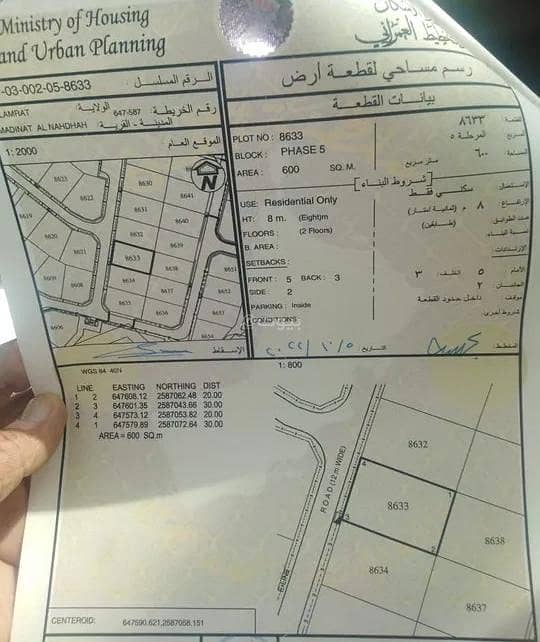 Ministry of Housing
and Urban Planning
-03-002-05-8633
الرقم المسلسل
رسم مساحي لقطعة أرض
AMRAT
الولاية:
647-587
رقم الخريطة
بيانات القطعة
MADINAT AL NAHDHAH
المدينة - القرية:
الموقع العام
1: 2000
PLOT NO : 8633
٨٦٣٣
BLOCK : PHASE 5
المرحلة ٥
AREA : 600 SQ. M.
متر مربع ٦٠٠
شروط البناء
USE: Residential Only
سكني فقط
HT: 8 m. (Eight)m
٨ م (ثمانية امتار)
FLOORS : (2 Floors)
(طابقين)
B. AREA :
SETBACKS:
FRONT : 5 BACK : 3
SIDE : 2
PARKING: Inside
داخل حدود القطعة
CONDITIONS:
8623
8630
8641
8631
8640
8619
8632
8639
8620
8621
8633
8638
8651
8634
8609
8608
8637
8652
8635
8636
8606
8654
الإسقاط
التاريخ
٢٠٢٢/١٠/٥
المخطط
WGS 84 40N
1: 800
LINE EASTING NORTHING DIST
1 2 647608.12 2587062.48 20.00
2 3 647601.35 2587043.66 30.00
3 4 647573.12 2587053.82 20.00
4 1 647579.89 2587072.64 30.00
AREA = 600 SQ.m
ROAD (12 m WIDE)
8632
8633
8638
8634
8637
4
1
3
2
CENTEROID: 647590.621,2587058.151